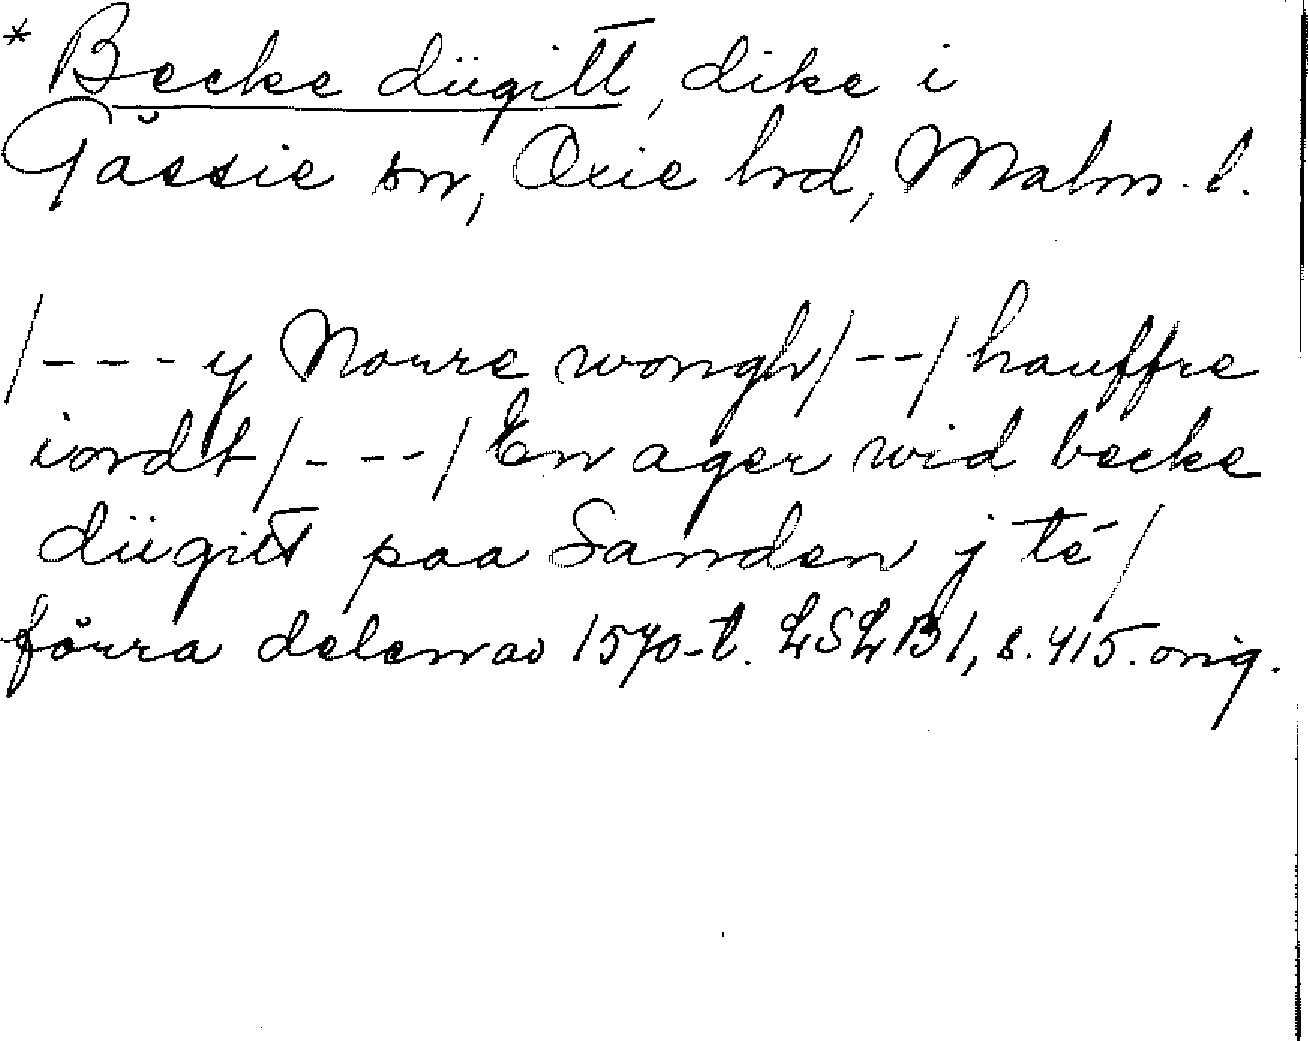 * Becke dügitt, dike i
Gässie sn, Oxie hrd, Malm. l.
/---y Nourre wongh/--/hauffre
iordt/---/En ager wid becke
dügitt paa Sanden j té/
förra delen av 1570-t. LSLB1, s. 415. orig.